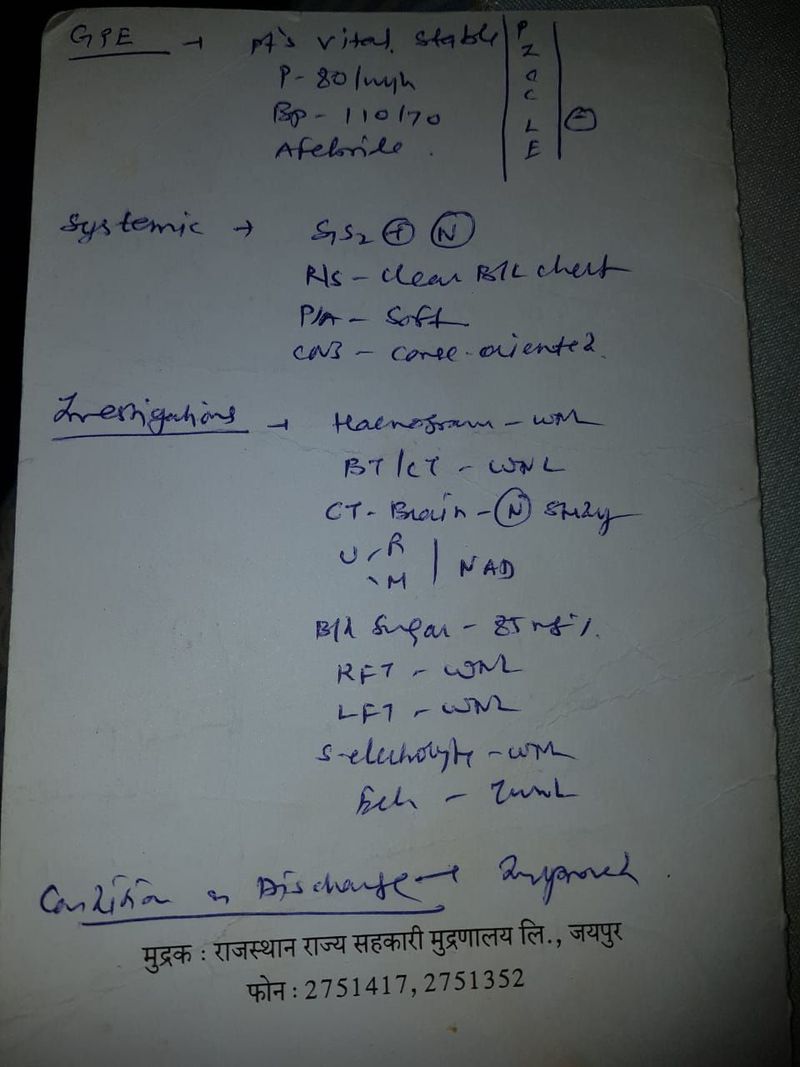 GPE → Pt's vital. stable
P
Z
O
C
L
E
⊖
P - 80/min
Bp - 110/70
Afebrile.
Systemic → S1S2 ⊕ Ⓝ
R/S - clear B/L chest
P/A - Soft
CNS - Conc. oriented.
Investigations → Haemogram - WNL
BT/CT - WNL
CT - Brain - Ⓝ study
U R
M | NAD
Bld Sugar - 85 mg%.
RFT - WNL
LFT - WNL
S-electrolyte - WNL
- WNL
Condition on Discharge → Improved.
मुद्रक : राजस्थान राज्य सहकारी मुद्रणालय लि., जयपुर
फोन : 2751417, 2751352